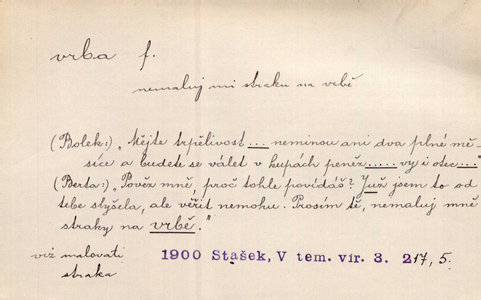 vrba f.
nemaluj mi straku na vrbě
(Bolek:) „Mějte trpělivost ... neminou ani dva plné mě-
síce a budete se válet v kupách peněz ..... vy i otec ..."
(Berta:) „Pověz mně, proč tohle povídáš? Již jsem to od
tebe slyšela, ale věřit nemohu. Prosím tě, nemaluj mně
straky na vrbě."
viz malovati
straka
1900 Stašek, V tem. vír. 3. 217, 5.